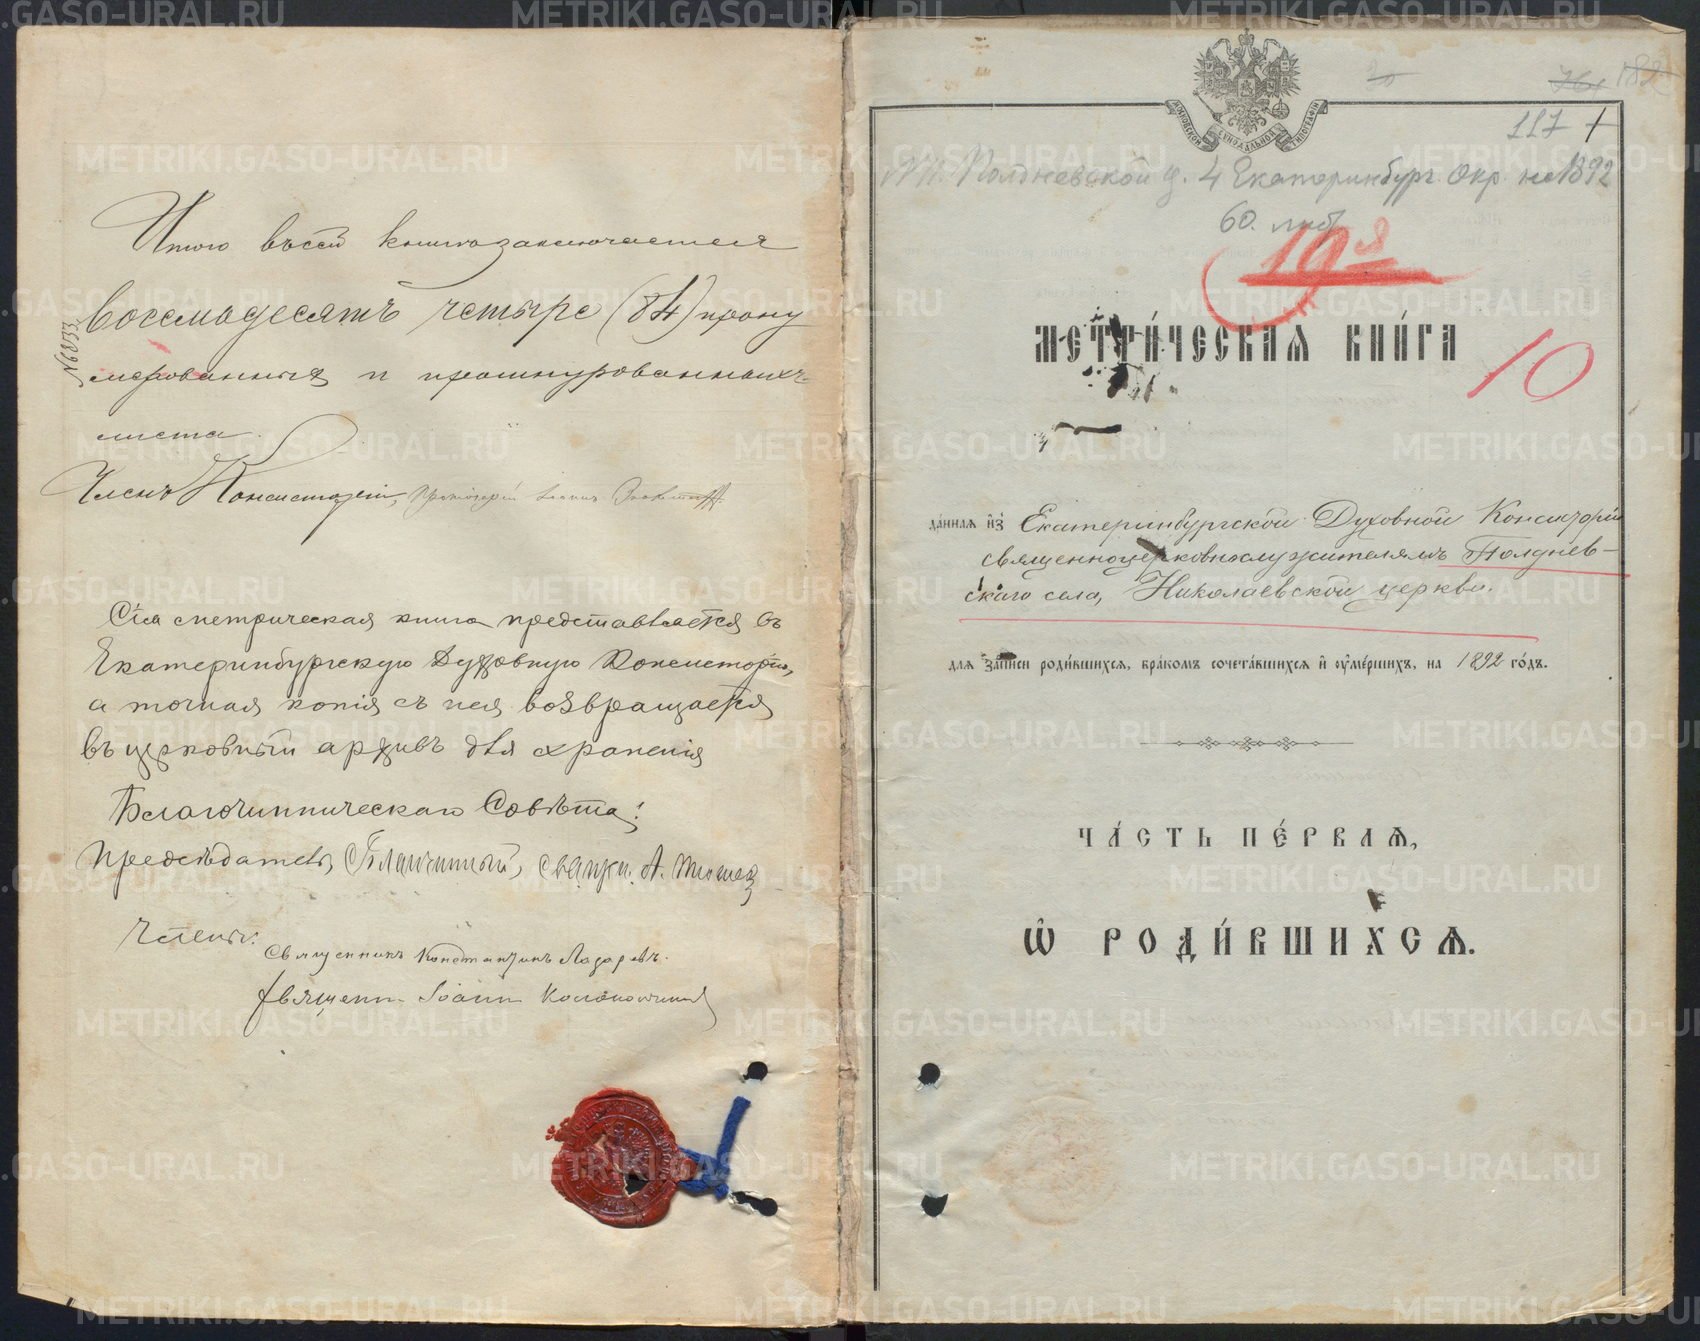 Итого въ сей книгѣ заключается
восемьдесятъ четыре (84) прону
мерованныхъ и прошнурованныхъ
листа.
Членъ Консисторіи, Протоіерей
№6833
Сія метрическая книга представляется въ
Екатеринбургскую Духовную Консисторію,
а точная копія съ нея возвращается
въ церковный архивъ для храненія
Благочинническаго Совѣта:
Предсѣдатель, Благочинный, Священ. А.
Члены:
Священникъ Константинъ Лазаревъ.
Священ. Іоаннъ
МОСКОВСКОЙ СѴНОДАЛЬНОЙ ТИПОГРАФІИ
182
117 +
Полдневской ц. 4 Екатеринбург. Окр. на 1892
60. лист
19я
МЕТРИ́ЧЕСКАЯ КНИ́ГА
10
да́нная и҆з̾ Екатеринбургской Духовной Консисторіи
священноцерковнослужителямъ Полднев-
скаго села, Николаевской церкви.
для за́писи роди́вшихся, бра́комъ сочета́вшихся и҆ ѹ҆ме́ршихъ, на 1892 го́дъ.
ЧА́СТЬ ПЕ́РВАЯ,
Ѡ҆ РОДИ́ВШИХСЯ.
METRIKI.GASO-URAL.RU